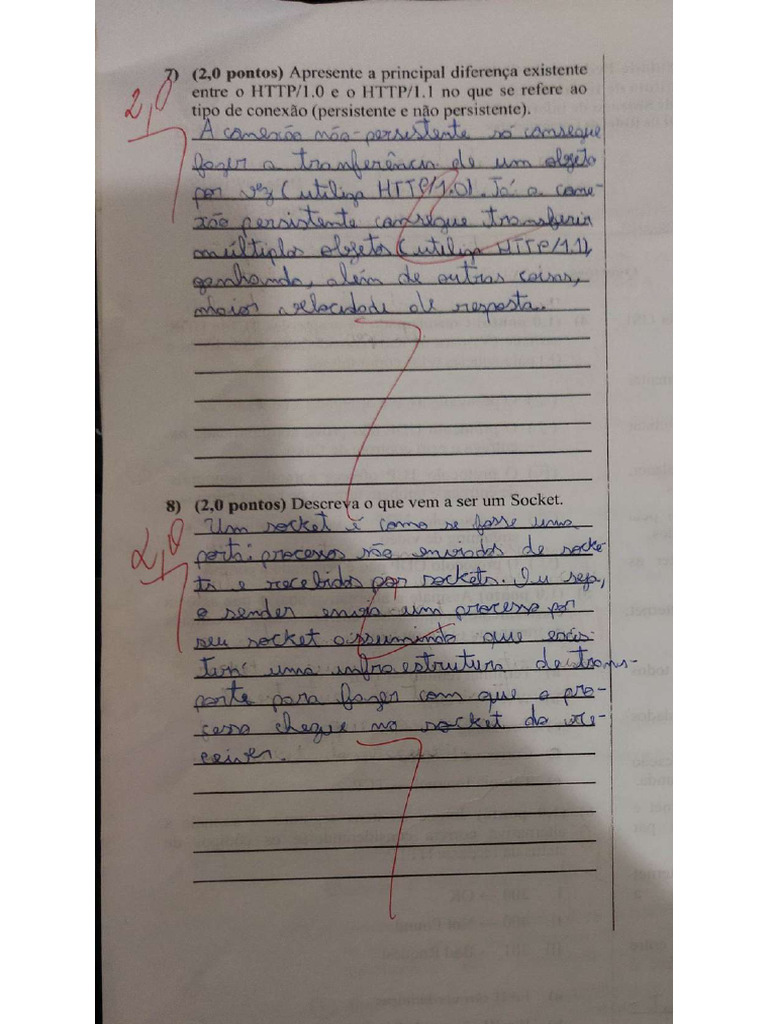 7) (2,0 pontos) Apresente a principal diferença existente
entre o HTTP/1.0 e o HTTP/1.1 no que se refere ao
tipo de conexão (persistente e não persistente).
2,0
A conexão não-persistente só consegue
fazer a tranferência de um objeto
por vez (utiliza HTTP/1.0). Já a cone-
xão persistente consegue transferir
múltiplos objetos (utiliza HTTP/1.1),
ganhando, além de outras coisas,
maior velocidade de resposta.
8) (2,0 pontos) Descreva o que vem a ser um Socket.
2,0
Um socket é como se fosse uma
porta; processos são enviados de socke-
ts e recebidos por sockets. Ou seja,
o sender envia um processo por
seu socket assumindo que exis-
tem uma infraestrutura de trans-
porte para fazer com que o pro-
cesso chegue no socket do re-
ceiver.